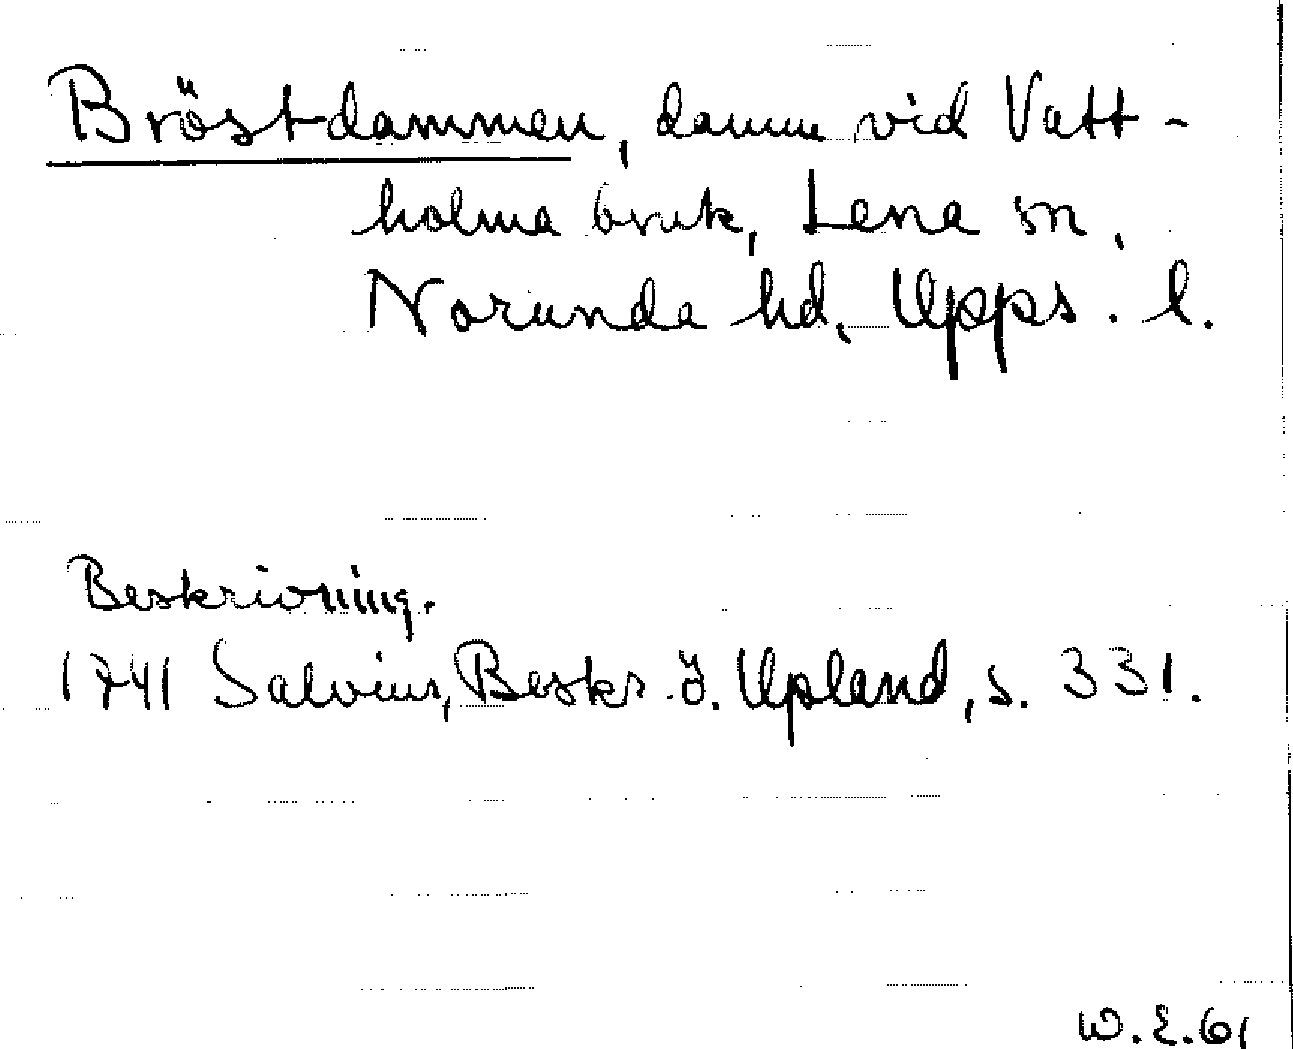 Bröstdammen, damm vid Vatt-
holma bruk, Lena sn,
Norunda hd, Upps. l.
Beskrivning.
1741 Salvius, Beskr. ö. Upland, s. 331.
W.E.61